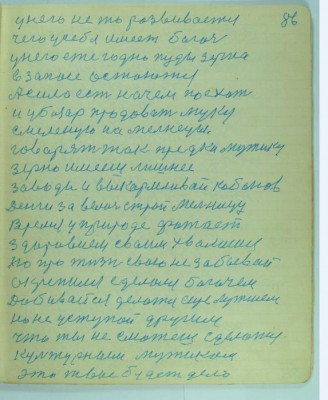 86
у него не то развивается
чего у себя имеет богач
у него ежегодно пуды зерна
в запасе остаются
А сила ест на чем поехат
и у базар продоват муку
смеленую на мелнецы
говорят так предки мужику
зерно имееш лишнее
заводи и выкармливай кабанов
Денги за
Время у природе
Здоровием своим хвалишся
Но про жизн свою не забывай
сделался богачем
Добивайся делать еще лутшем
но не уступой другим
что ты не сможеш сделать
культурным мужиком
это твое будет дело